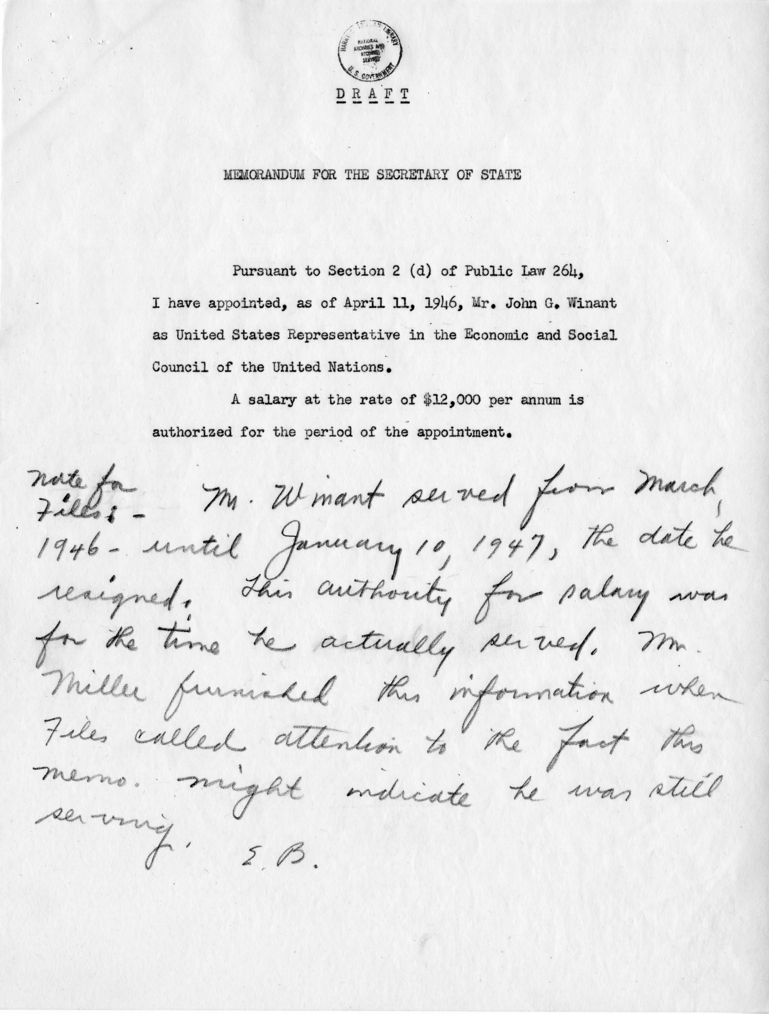 HARRY S. TRUMAN LIBRARY
NATIONAL
ARCHIVES AND
RECORDS
SERVICE
U. S. GOVERNMENT
D R A F T
MEMORANDUM FOR THE SECRETARY OF STATE
Pursuant to Section 2 (d) of Public Law 264,
I have appointed, as of April 11, 1946, Mr. John G. Winant
as United States Representative in the Economic and Social
Council of the United Nations.
A salary at the rate of $12,000 per annum is
authorized for the period of the appointment.
Note for
Files: - Mr. Winant served from March,
1946 - until January 10, 1947, the date he
resigned. This authority for salary was
for the time he actually served. Mr.
Miller furnished this information when
Files called attention to the fact this
memo. might indicate he was still
serving. E. B.